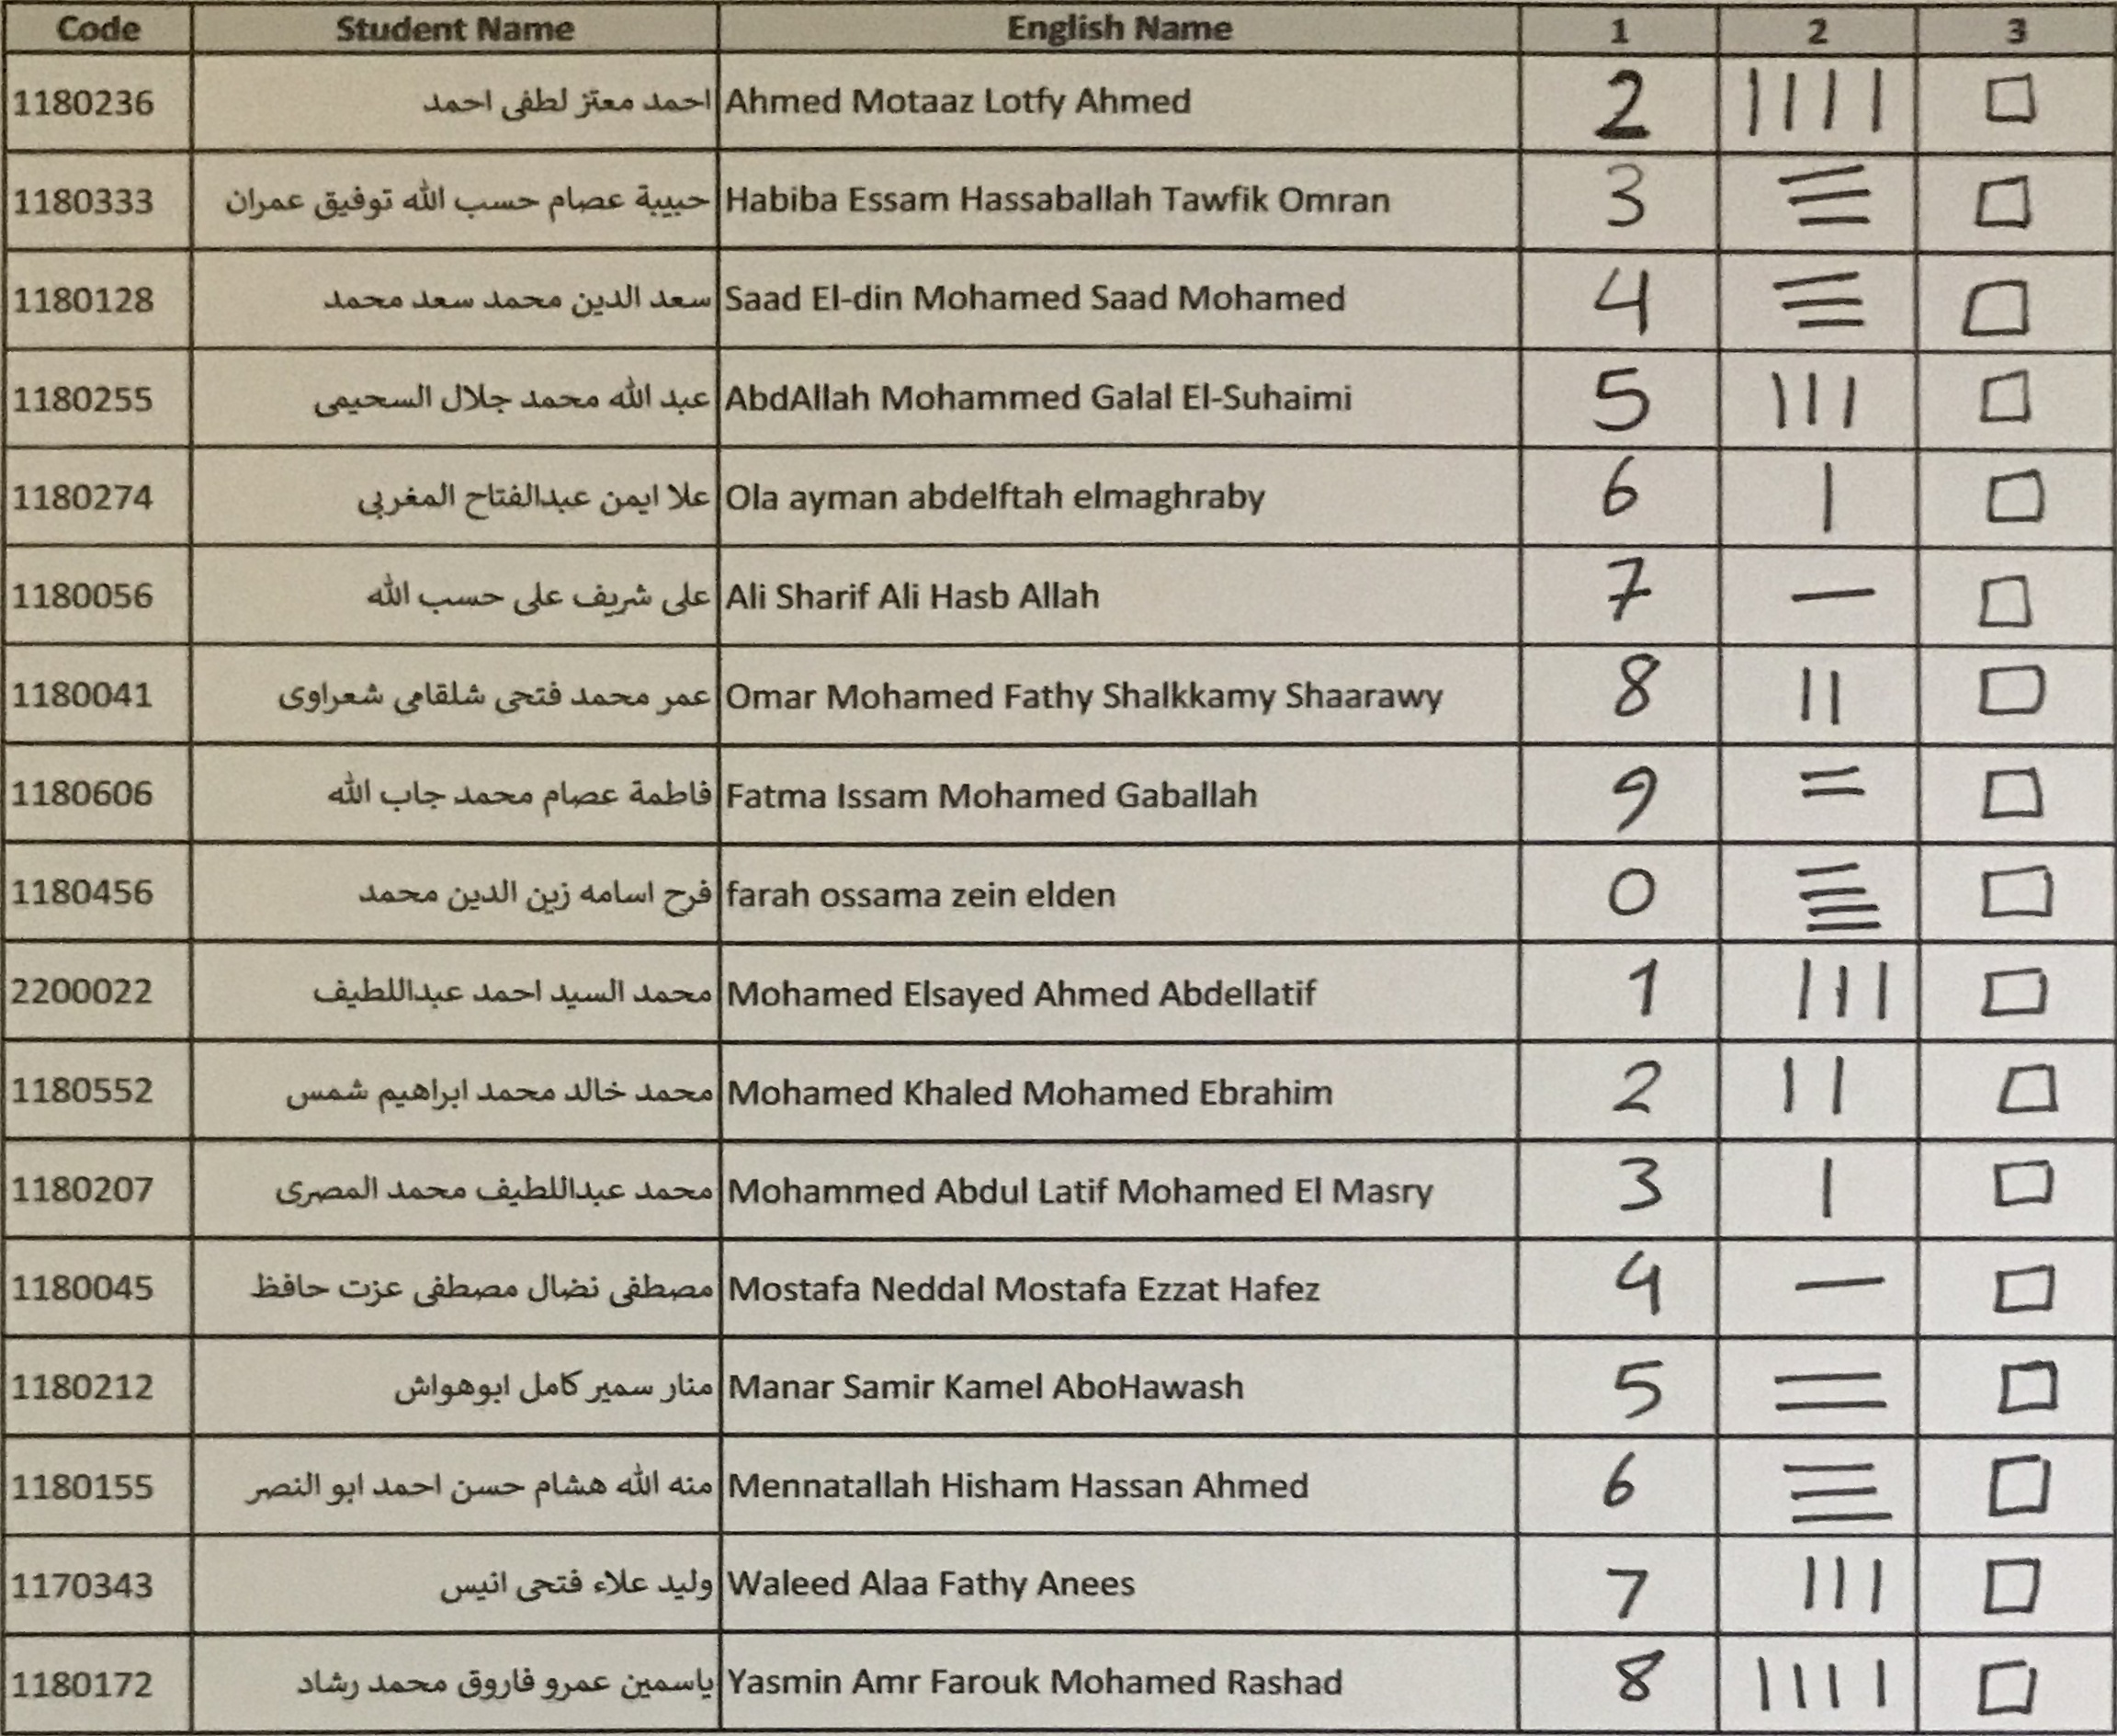 Code Student Name English Name 1 2 3
1180236 احمد معتز لطفى احمد Ahmed Motaaz Lotfy Ahmed 2 | | | | □
1180333 حبيبة عصام حسب الله توفيق عمران Habiba Essam Hassaballah Tawfik Omran 3 ☰ □
1180128 سعد الدين محمد سعد محمد Saad El-din Mohamed Saad Mohamed 4 ☰ □
1180255 عبد الله محمد جلال السحيمى AbdAllah Mohammed Galal El-Suhaimi 5 | | | □
1180274 علا ايمن عبدالفتاح المغربى Ola ayman abdelftah elmaghraby 6 | □
1180056 على شريف على حسب الله Ali Sharif Ali Hasb Allah 7 — □
1180041 عمر محمد فتحى شلقامى شعراوى Omar Mohamed Fathy Shalkkamy Shaarawy 8 | | □
1180606 فاطمة عصام محمد جاب الله Fatma Issam Mohamed Gaballah 9 = □
1180456 فرح اسامه زين الدين محمد farah ossama zein elden 0 ≣ □
2200022 محمد السيد احمد عبداللطيف Mohamed Elsayed Ahmed Abdellatif 1 | | | □
1180552 محمد خالد محمد ابراهيم شمس Mohamed Khaled Mohamed Ebrahim 2 | | □
1180207 محمد عبداللطيف محمد المصرى Mohammed Abdul Latif Mohamed El Masry 3 | □
1180045 مصطفى نضال مصطفى عزت حافظ Mostafa Neddal Mostafa Ezzat Hafez 4 — □
1180212 منار سمير كامل ابوهواش Manar Samir Kamel AboHawash 5 = □
1180155 منه الله هشام حسن احمد ابو النصر Mennatallah Hisham Hassan Ahmed 6 ☰ □
1170343 وليد علاء فتحى انيس Waleed Alaa Fathy Anees 7 | | | □
1180172 ياسمين عمرو فاروق محمد رشاد Yasmin Amr Farouk Mohamed Rashad 8 | | | | □